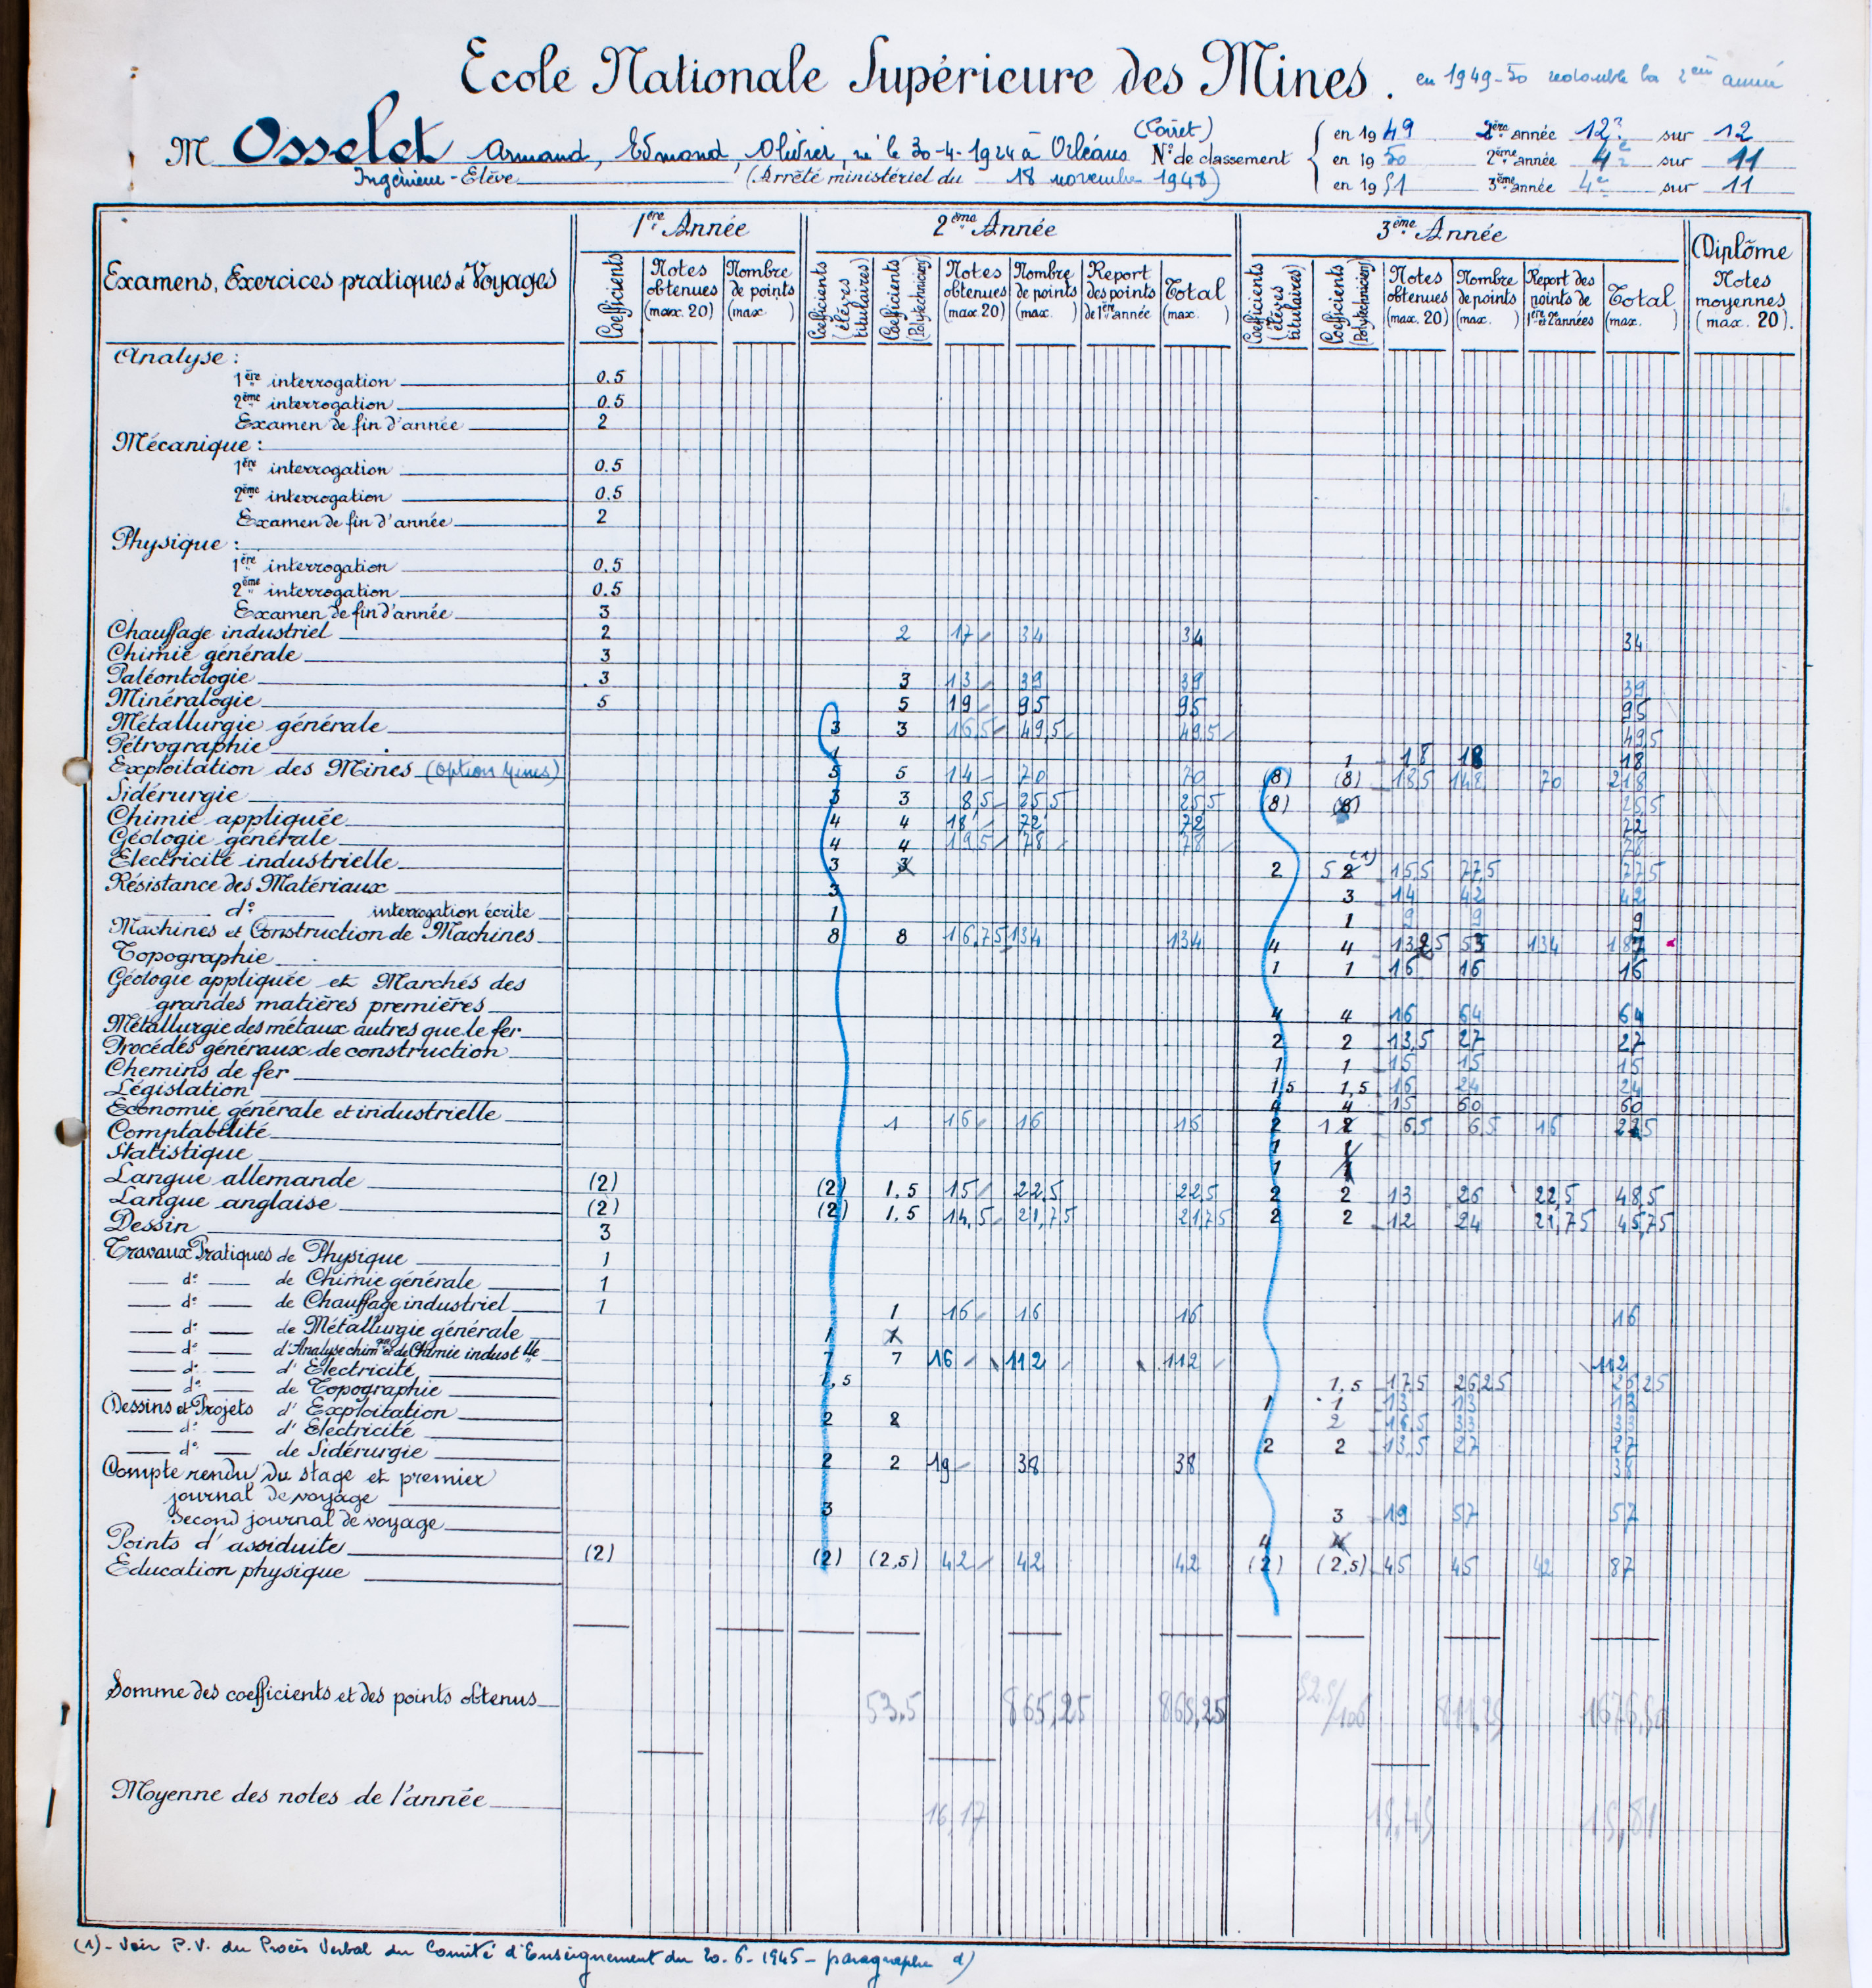 Ecole Nationale Supérieure des Mines. en 1949-50 redouble la 2ème année
M Osselet Armand, Edmond, Olivier, né le 30-4-1924 à Orléans (Loiret)
Ingénieur-Elève (Arrêté ministériel du 18 novembre 1948)
N° de classement
en 1949 2ème année 12e sur 12
en 1950 2ème année 4e sur 11
en 1951 3ème année 4e sur 11
Examens, Exercices pratiques et Voyages 1ère Année 2ème Année 3ème Année Diplôme Notes moyennes (max. 20).
Coefficients Notes obtenues (max. 20) Nombre de points (max. )
Coefficients (élèves titulaires) Coefficients (Polytechniciens) Notes obtenues (max. 20) Nombre de points (max. ) Report des points de 1ère année Total (max. )
Coefficients (élèves titulaires) Coefficients (Polytechniciens) Notes obtenues (max. 20) Nombre de points (max. ) Report des points de 1ère et 2e années Total (max. )
Analyse :
1ère interrogation 0.5
2ème interrogation 0.5
Examen de fin d'année 2
Mécanique :
1ère interrogation 0.5
2ème interrogation 0.5
Examen de fin d'année 2
Physique :
1ère interrogation 0.5
2ème interrogation 0.5
Examen de fin d'année 3
Chauffage industriel 2 2 17 34 34 34
Chimie générale 3
Paléontologie 3 3 13 39 39 39
Minéralogie 5 5 19 95 95 95
Métallurgie générale 3 3 16,5 49,5 49,5 49,5
Pétrographie 1 1 18 18 18
Exploitation des Mines (option Mines) 5 5 14 70 70 (8) (8) 18,5 148 70 218
Sidérurgie 3 3 8,5 25,5 25,5 (8) (8) 25,5
Chimie appliquée 4 4 18 72 72 72
Géologie générale 4 4 19,5 78 78 78
Electricité industrielle 3 3 2 5 2 (1) 15,5 77,5 77,5
Résistance des Matériaux 3 3 14 42 42
d° interrogation écrite 1 1 9 9 9
Machines et Construction de Machines 8 8 16,75 134 134 4 4 13,25 53 134 187
Topographie 1 1 16 16 16
Géologie appliquée et Marchés des
grandes matières premières 4 4 16 64 64
Métallurgie des métaux autres que le fer 2 2 13,5 27 27
Procédés généraux de construction 1 1 15 15 15
Chemins de fer 1,5 1,5 16 24 24
Législation 4 4 15 60 60
Economie générale et industrielle 1 16 16 16 2 1 2 6,5 6,5 16 22,5
Comptabilité 1 1
Statistique 1 1
Langue allemande (2) (2) 1.5 15 22,5 22,5 2 2 13 26 22,5 48,5
Langue anglaise (2) (2) 1.5 14,5 21,75 21,75 2 2 12 24 21,75 45,75
Dessin 3
Travaux Pratiques de Physique 1
d° de Chimie générale 1
d° de Chauffage industriel 1 1 16 16 16 16
d° de Métallurgie générale 1 1
d° d'Analyse chimque et de Chimie industlle 7 7 16 112 112 112
d° d'Electricité 1,5 1,5 17,5 26,25 26,25
d° de Topographie 1 1 13 13 13
Dessins et Projets d'Exploitation 2 2 2 16,5 33 33
d° d'Electricité 2 2 13,5 27 27
d° de Sidérurgie 2 2 19 38 38 38
Compte rendu du stage et premier
journal de voyage 3 3 19 57 57
Second journal de voyage 4 4
Points d'assiduité (2) (2) (2,5) 42 42 42 (2) (2,5) 45 45 42 87
Education physique
Somme des coefficients et des points obtenus 53,5 865,25 865,25 52.5/106 811,25 1676,50
Moyenne des notes de l'année 16,17 15,45 15,81
(1) - Voir P.V. du Procès Verbal du Comité d'Enseignement du 20-6-1945 - paragraphe d)